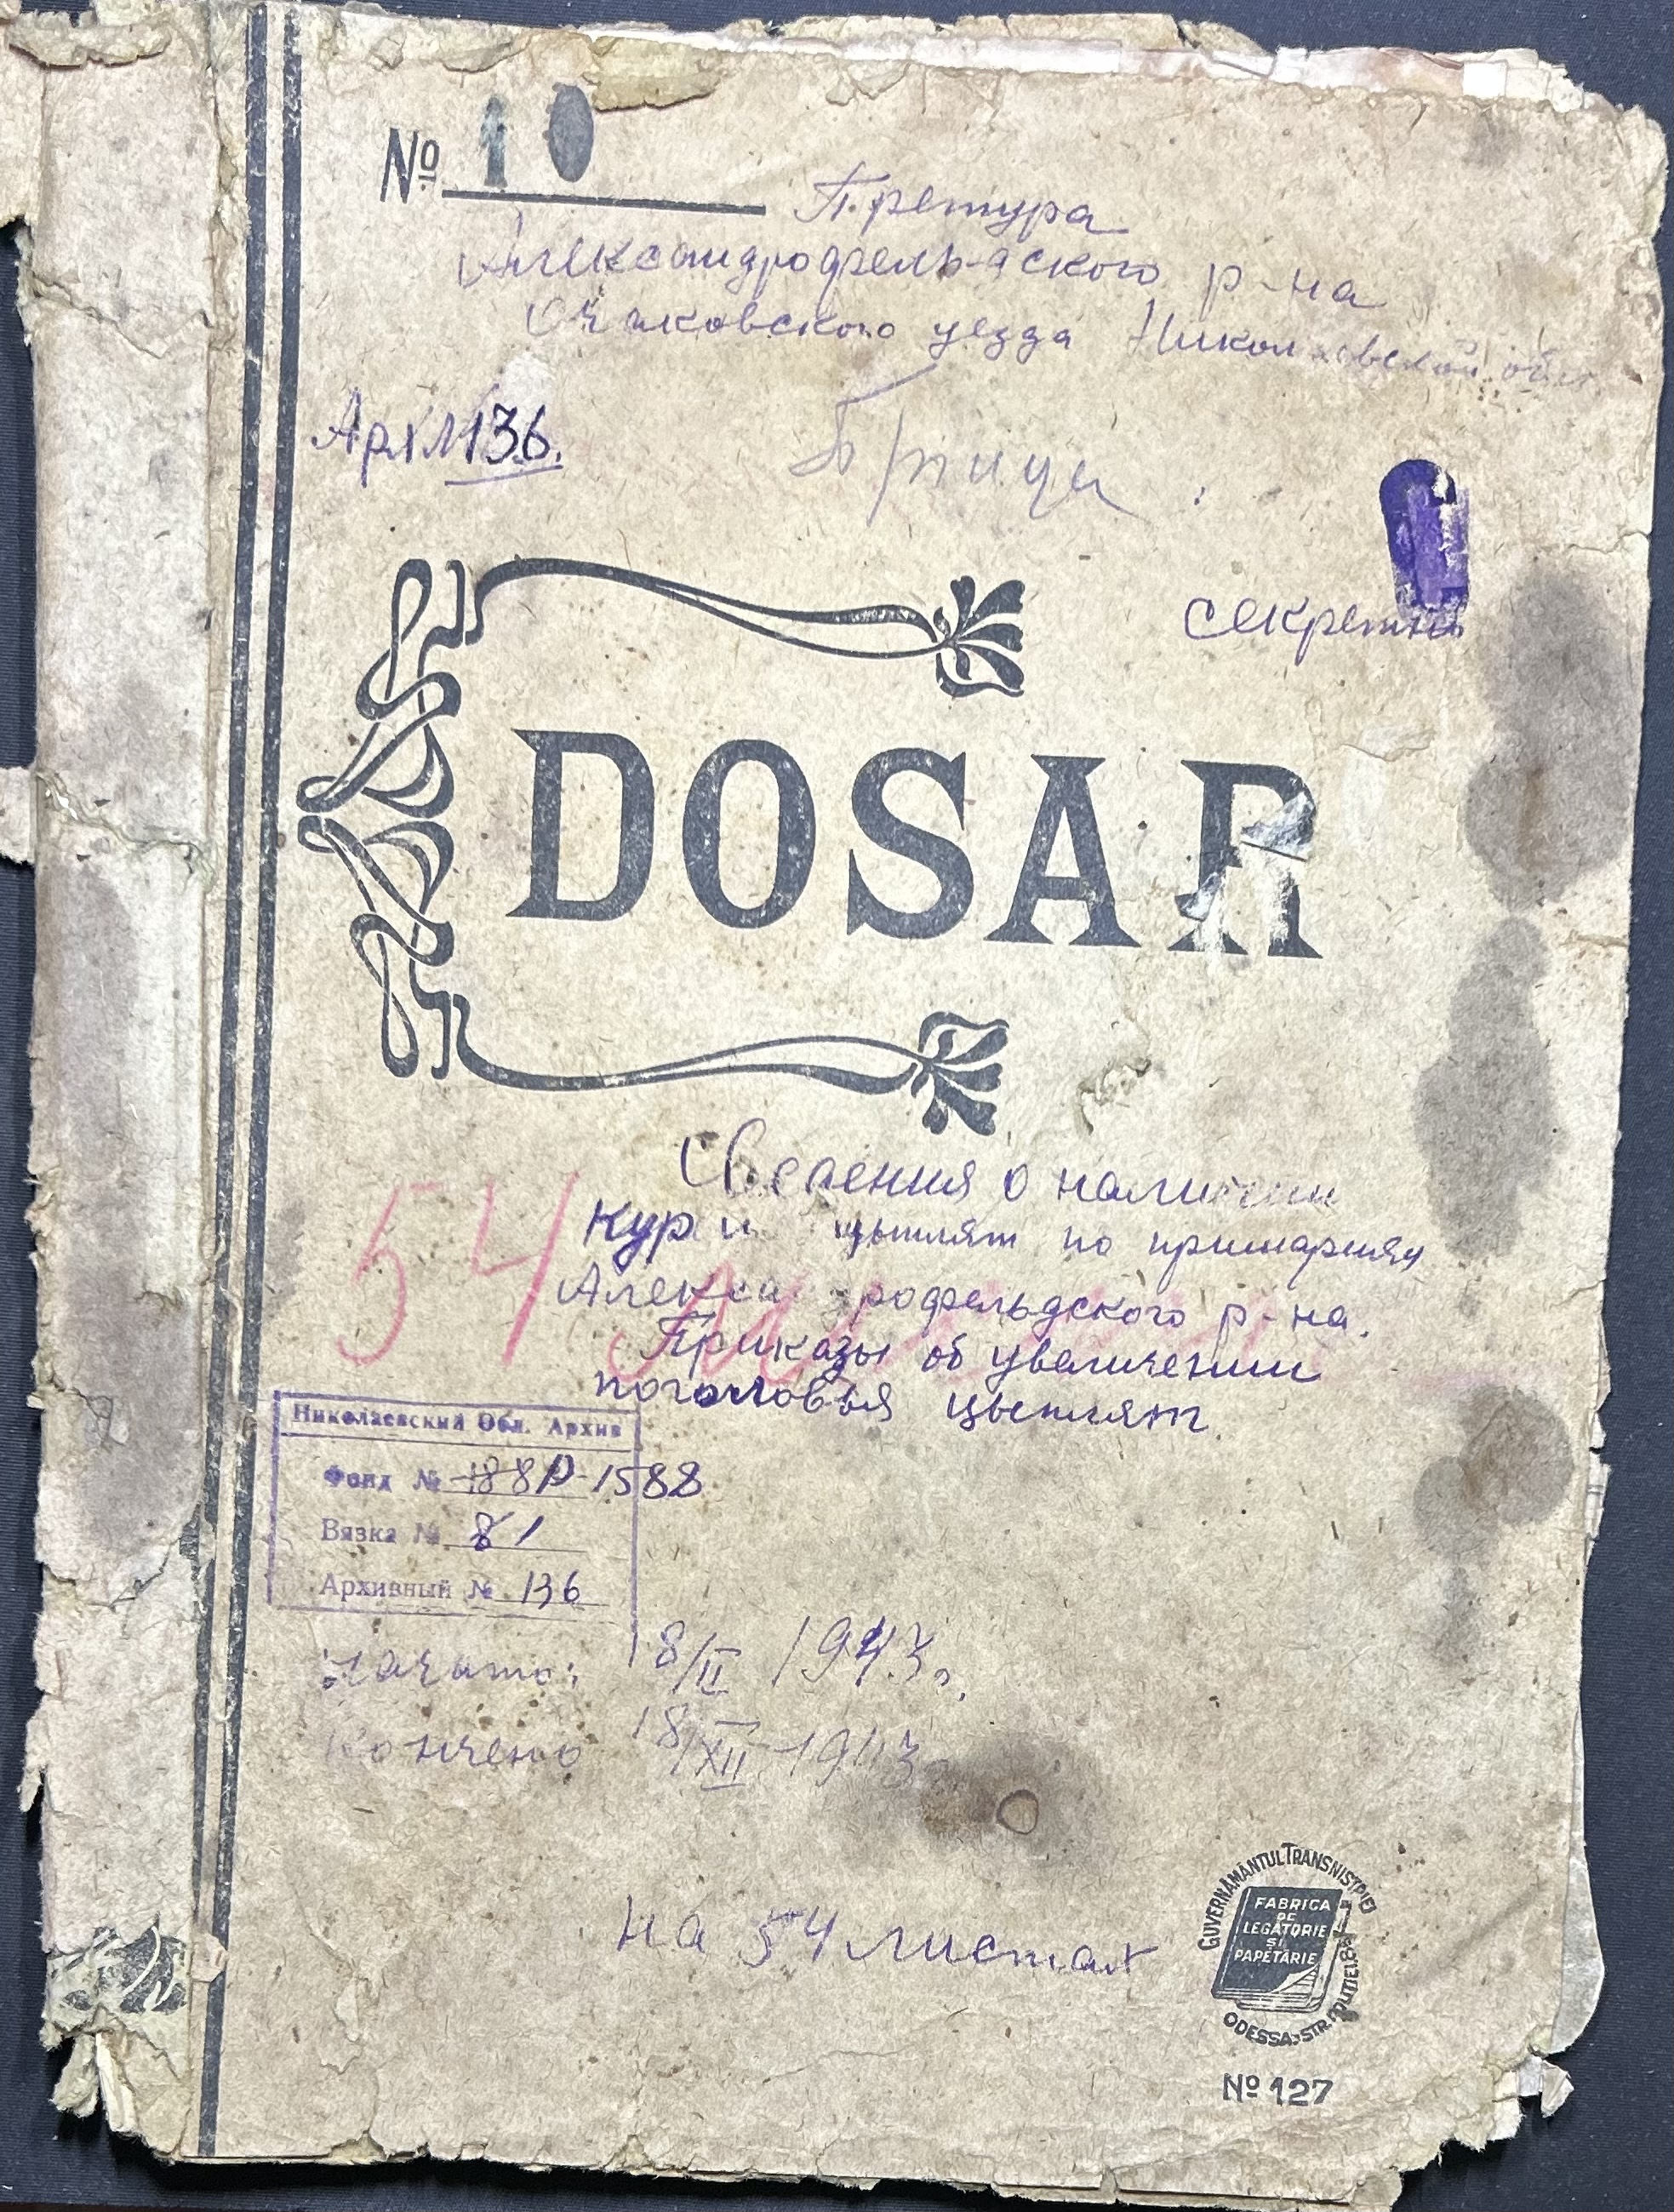 № 10
Претура
Александрофельдского р-на
Очаковского уезда Николаевской обл
Арх№136.
Птица
секретн
DOSAR
Сведения о наличии
кур и цыплят по примариям
Александрофельдского р-на.
Приказы об увеличении
поголовья цыплят
54
Николаевский Обл. Архив
Фонд № 188 Р-1588
Вязка № 81
Архивный № 136
Начато: 18/II 1943г.
Кончено 18/XII 1943г
на 54 листах
GUVERNĂMÂNTUL TRANSNISTRIEI
FABRICA
DE
LEGĂTORIE
ȘI
PAPETĂRIE
ODESSA, STR.
№ 127